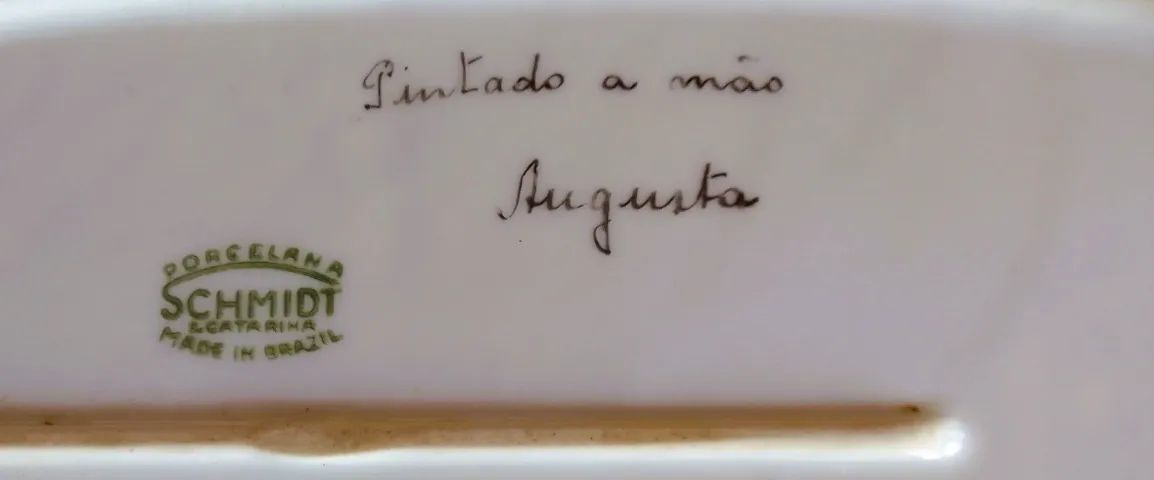 Pintado a mão
Augusta
PORCELANA
SCHMIDT
S.CATARINA
MADE IN BRAZIL